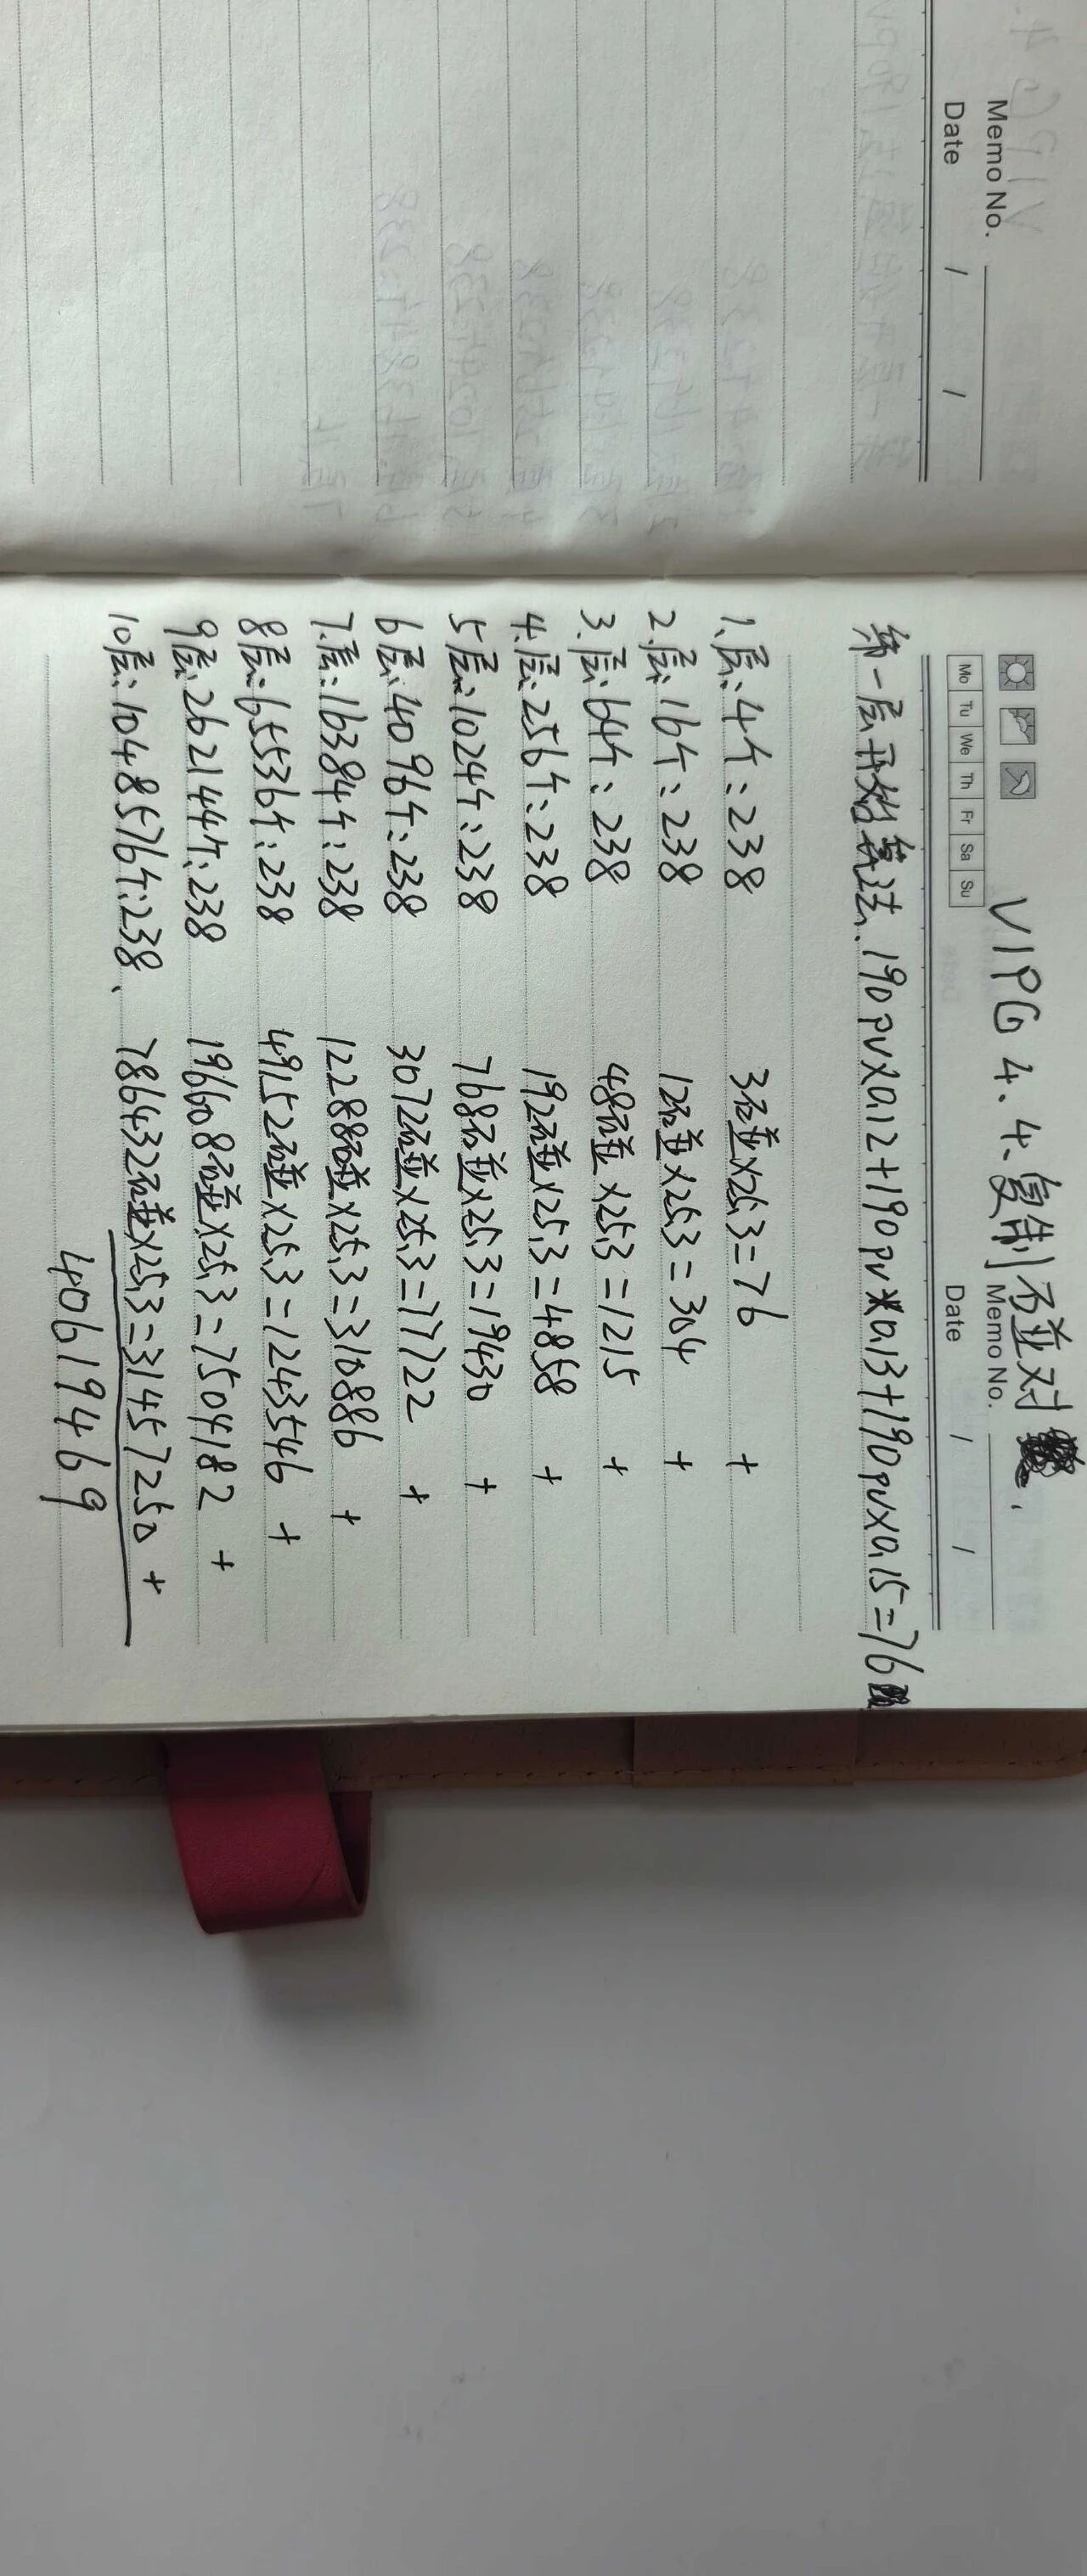 VIPG 4.4.复制不並对.
Memo No.
Date / /
Mo Tu We Th Fr Sa Su
第一层开始算法.190pv×0.12+190pv×0.13+190pv×0.15=76
1.层:4个:238 3砬×25.3=76 +
2.层:16个:238 12砬×25.3=304 +
3.层:64个:238 48砬×25.3=1215 +
4.层:256个:238 192砬×25.3=4858 +
5层:1024个:238 768砬×25.3=19430 +
6层:4096个:238 3072砬×25.3=77722 +
7.层:16384个:238 12288砬×25.3=310886 +
8层:65536个:238 49152砬×25.3=1243546 +
9层:262144个:238 196608砬×25.3=7504182 +
10层:1048576个:238、 786432砬×25.3=31457250 +
40619469
Memo No.
Date / /